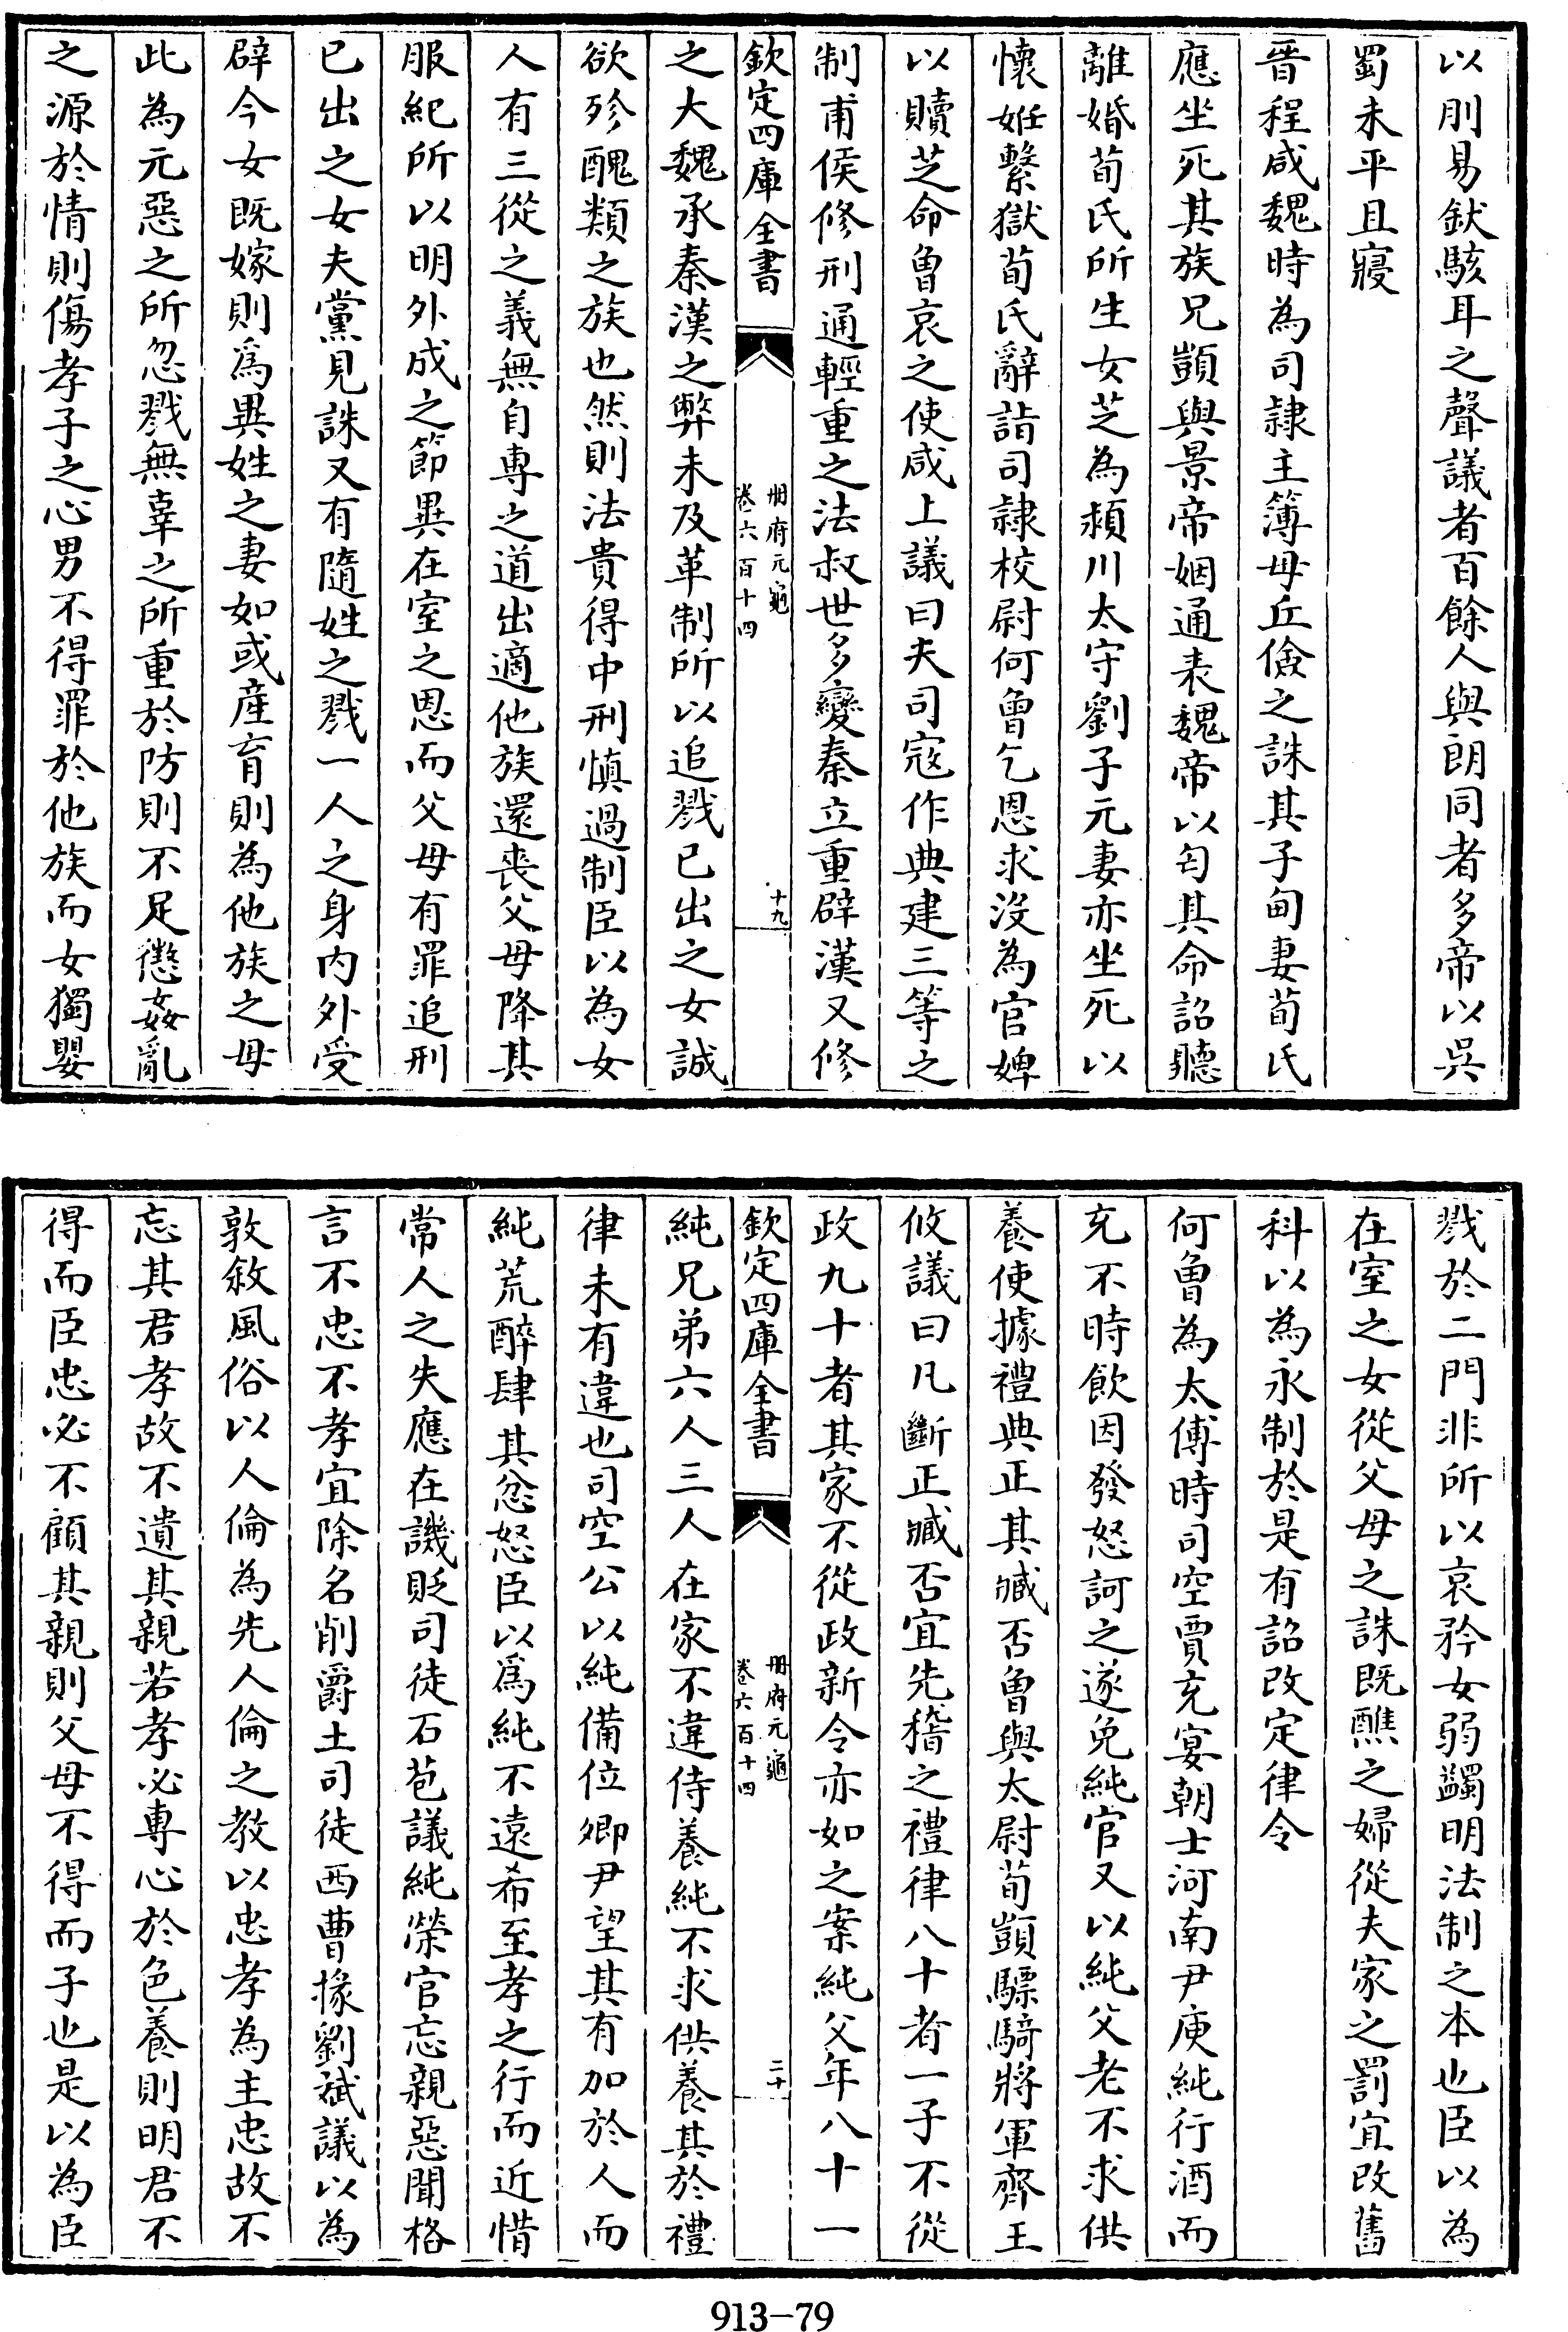 以刖易釱駭耳之聲議者百餘人與朗同者多帝以吳
蜀未平且寢
晉程咸魏時為司隸主簿毋丘儉之誅其子甸妻荀氏
應坐死其族兄顗與景帝姻通表魏帝以匄其命詔聽
離婚荀氏所生女芝為潁川太守劉子元妻亦坐死以
懷姙繫獄荀氏辭詣司隸校尉何曾乞恩求沒為官婢
以贖芝命曾哀之使咸上議曰夫司寇作典建三等之
制甫侯修刑通輕重之法叔世多變秦立重辟漢又修
欽定四庫全書
冊府元龜
卷六百十四
十九
之大魏承秦漢之弊未及革制所以追戮已出之女誠
欲殄醜類之族也然則法貴得中刑慎過制臣以為女
人有三從之義無自專之道出適他族還喪父母降其
服紀所以明外成之節異在室之恩而父母有罪追刑
已出之女夫黨見誅又有隨姓之戮一人之身內外受
辟今女既嫁則為異姓之妻如或產育則為他族之母
此為元惡之所忽戮無辜之所重於防則不足懲姦亂
之源於情則傷孝子之心男不得罪於他族而女獨嬰
戮於二門非所以哀矜女弱蠲明法制之本也臣以為
在室之女從父母之誅既醮之婦從夫家之罰宜改舊
科以為永制於是有詔改定律令
何曾為太傅時司空賈充宴朝士河南尹庾純行酒而
充不時飲因發怒訶之遂免純官又以純父老不求供
養使據禮典正其臧否曾與太尉荀顗驃騎將軍齊王
攸議曰凡斷正臧否宜先稽之禮律八十者一子不從
政九十者其家不從政新令亦如之案純父年八十一
欽定四庫全書
冊府元龜
卷六百十四
二十
純兄弟六人三人在家不違侍養純不求供養其於禮
律未有違也司空公以純備位卿尹望其有加於人而
純荒醉肆其忿怒臣以為純不遠希至孝之行而近惜
常人之失應在譏貶司徒石苞議純榮官忘親惡聞格
言不忠不孝宜除名削爵土司徒西曹掾劉斌議以為
敦敘風俗以人倫為先人倫之教以忠孝為主忠故不
忘其君孝故不遺其親若孝必專心於色養則明君不
得而臣忠必不顧其親則父母不得而子也是以為臣
913-79